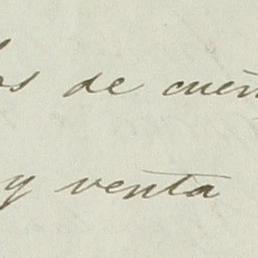 os de cuen
y venta